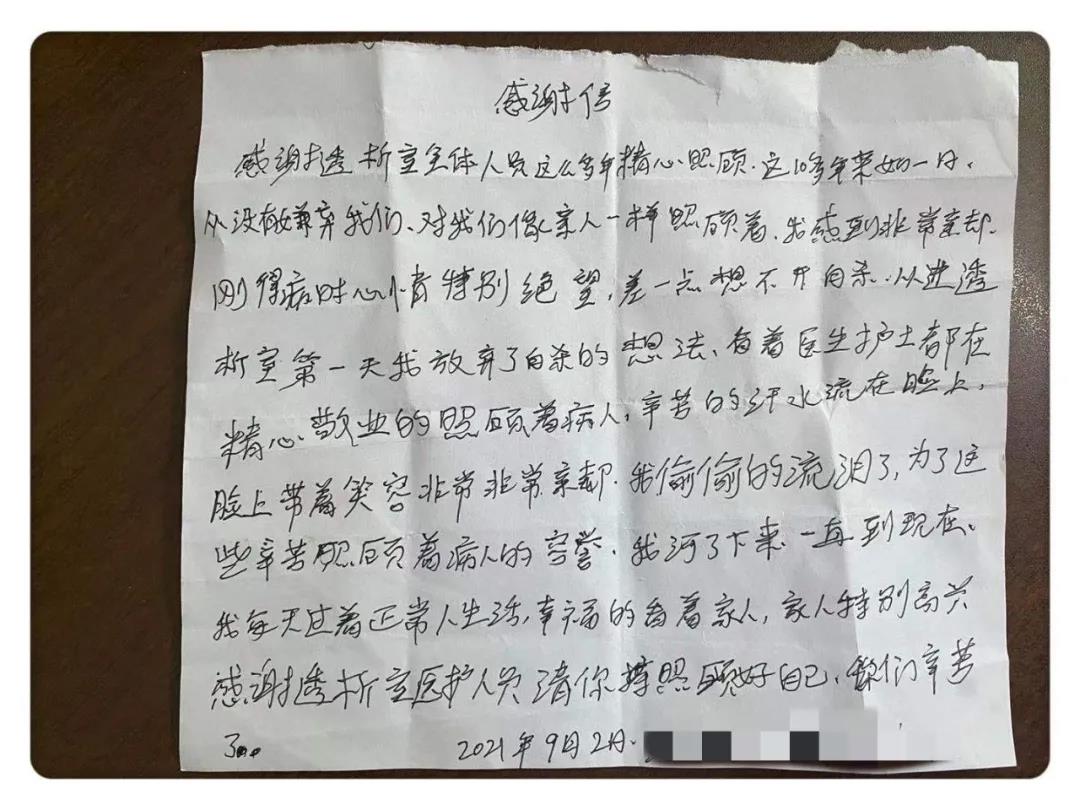 感谢信
感谢透析室全体人员这么多年精心照顾.这10多年来如一日.
从没有嫌弃我们、对我们像亲人一样照顾着、我感到非常亲却.
刚得病时心情特别绝望,差一点想不开自杀.从进透
析室第一天我放弃了自杀的想法、看着医生护士都在
精心、敬业的照顾着病人,辛苦的汗水流在脸上,
脸上带着笑容非常非常亲却.我偷偷的流泪了,为了这
些辛苦照顾着病人的,我活了下来.一直到现在.
我每天过着正常人生活,幸福的看着家人,家人特别高兴
感谢透析室医护人员请你照顾好自己、你们辛苦
了..
2021年9月2日.